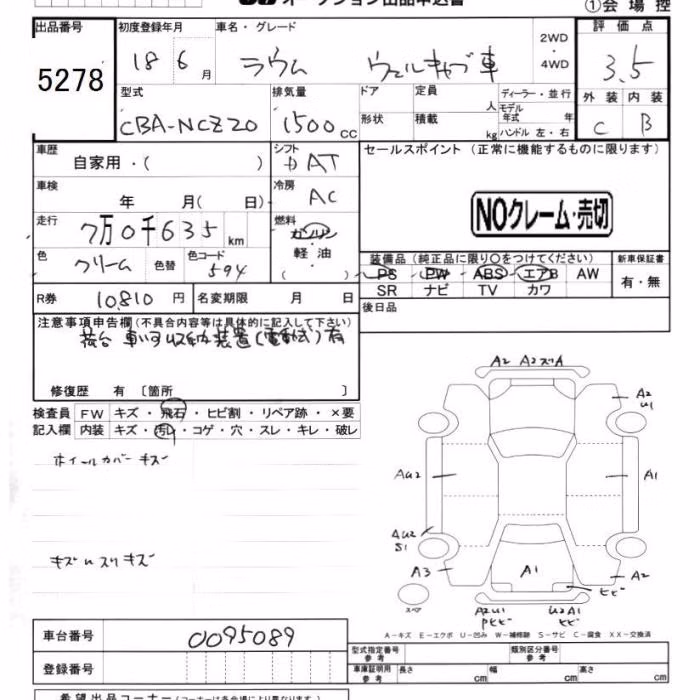 オークション出品申込書
①会場控
出品番号 5278
初度登録年月 18 6月
車名・グレード ラウム ウェルキャブ車
2WD・4WD
評価点 3.5
外装 C 内装 B
型式 CBA-NCZ20
排気量 1500cc
ドア 形状
定員 人 積載 kg
ディーラー・並行
モデル年式 年式
ハンドル 左・右
車歴 自家用・( )
シフト AT
セールスポイント (正常に機能するものに限ります)
NOクレーム・売切
車検 年 月( 日)
冷房 AC
走行 7万0千635km
燃料 ガソリン 軽油 ( )
色 クリーム 色替 色コード 594
装備品 (純正品に限り○をつけてください)
PS PW ABS エアB AW
SR ナビ TV カワ
新車保証書 有・無
R券 10,810円 名変期限 月 日
後日品
注意事項申告欄(不具合内容等は具体的に記入して下さい)
荷台 車いす収納装置(電動式)有
修復歴 有 〔箇所 〕
検査員記入欄
FW キズ・飛石・ヒビ割・リペア跡・×要
内装 キズ・汚レ・コゲ・穴・スレ・キレ・破レ
ホイールカバーキズ
キズ スリキズ
A2 A2 スリA
A2
U1
AU2
A1
AU2
S1
A3
A1
A2
ヒビ
スペア
A2 U1
ヒビ
U2 A1
ヒビ
A-キズ E-エクボ U-凹み W-補修跡 S-サビ C-腐食 XX-交換済
車台番号 0095089
登録番号
型式指定番号 参考
類別区分番号 参考
車庫証明用 参考 長さ cm 幅 cm 高さ cm
希望出品コーナー